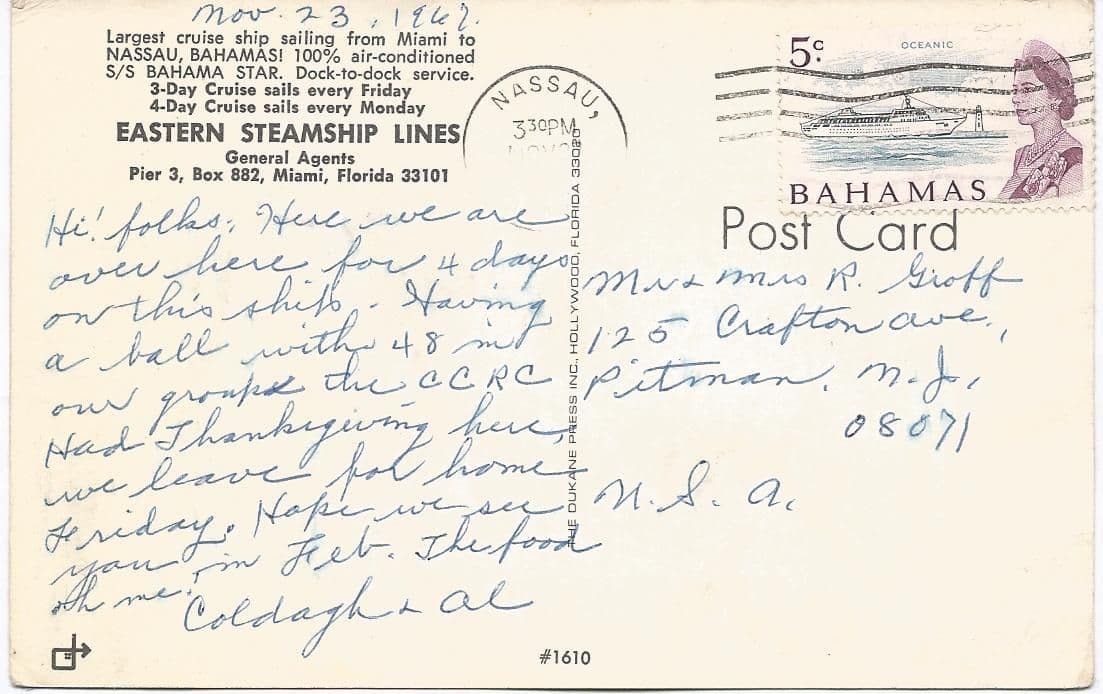 Nov. 23, 1967.
Largest cruise ship sailing from Miami to
NASSAU, BAHAMAS! 100% air-conditioned
S/S BAHAMA STAR. Dock-to-dock service.
3-Day Cruise sails every Friday
4-Day Cruise sails every Monday
EASTERN STEAMSHIP LINES
General Agents
Pier 3, Box 882, Miami, Florida 33101
Hi! folks; Here we are
over here for 4 days
on this ship. Having
a ball with 48 in
our group the CCRC
Had Thanksgiving here,
we leave for home
Friday. Hope we see
you in Feb. The food
oh me!
& Al
#1610
THE DUKANE PRESS INC., HOLLYWOOD, FLORIDA 33020
NASSAU,
3 30 PM
NOV
5c
OCEANIC
BAHAMAS
Post Card
Mr & Mrs R. Groff
125 Crafton ave.,
Pitman, N.J.,
08071
U.S.A.